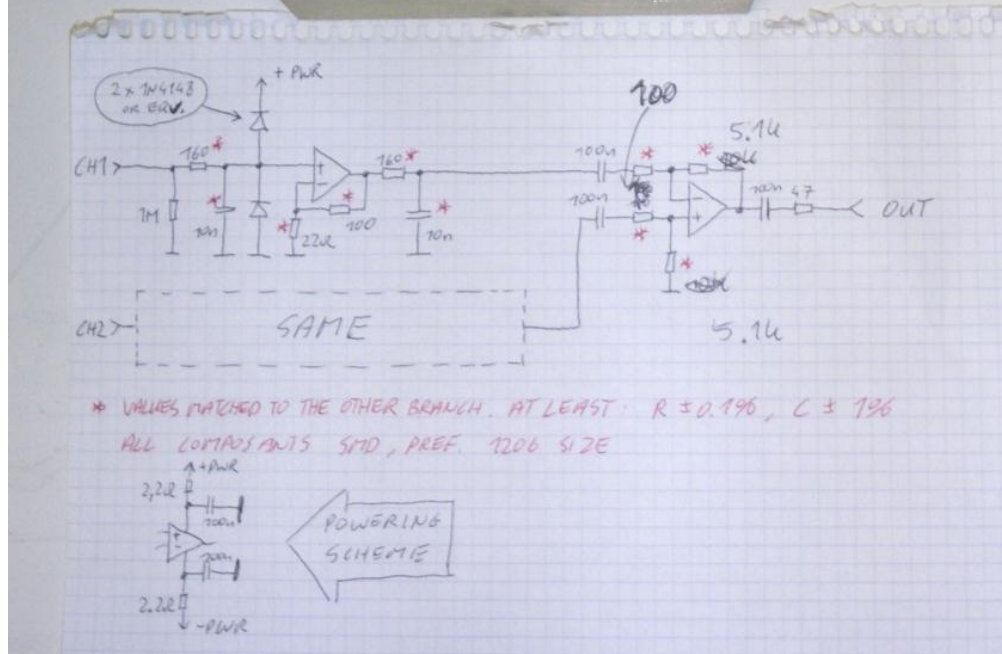 2 x 1N4148
OR EQV.
+ PWR
CH1
160*
1M
*
10n
+
-
*
100
*
22Ω
160*
*
10n
100n
100
*
*
5.1k
100n
*
-
+
*
5.1k
100n
47
OUT
CH2
SAME
* VALUES MATCHED TO THE OTHER BRANCH. AT LEAST: R ± 0.1%, C ± 1%
ALL COMPOSANTS SMD, PREF. 1206 SIZE
+PWR
2,2Ω
100n
+
-
100n
2.2Ω
-PWR
POWERING
SCHEME